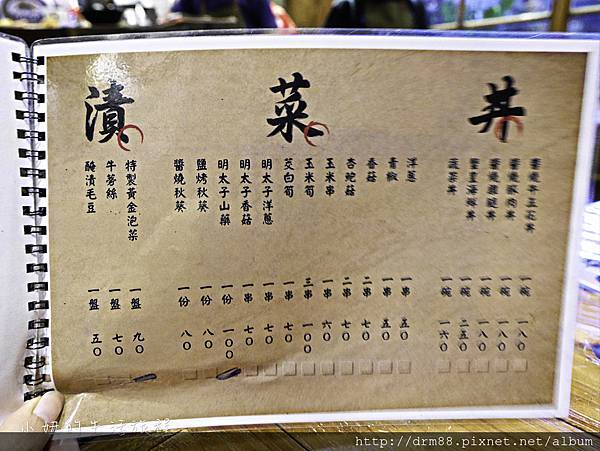 丼
牛五花丼 一碗 一八〇
豚肉丼 一碗 一八〇
雞腿丼 一碗 一八〇
海鮮丼 一碗 二五〇
蔬菜丼 一碗 一六〇
菜
洋蔥 一串 五〇
青椒 一串 五〇
香菇 二串 七〇
杏鮑菇 二串 七〇
玉米串 一串 六〇
玉米筍 三串 一〇〇
茭白筍 一串 七〇
明太子洋蔥 一串 七〇
明太子香菇 一串 七〇
明太子山藥 一份 一〇〇
鹽烤秋葵 一份 八〇
醬燒秋葵 一份 八〇
漬
特製黃金泡菜 一盤 九〇
牛蒡絲 一盤 七〇
醃漬毛豆 一盤 五〇
小妞的生活旅程
http://drm88.pixnet.net/album